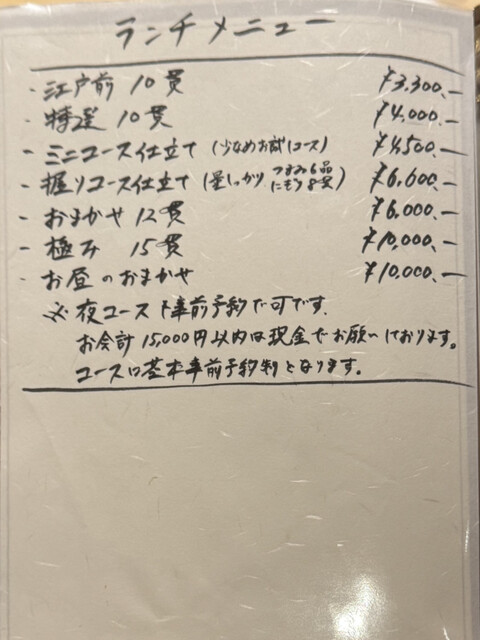 ランチメニュー
・江戸前 10貫 ¥3,300.-
・特選 10貫 ¥4,000.-
- ミニコース仕立て (少なめお試しコース) ¥4,500.-
- 握りコース仕立て (量しっかり つまみ6品 にぎり8貫) ¥6,600.-
- おまかせ 12貫 ¥6,000.-
- 極み 15貫 ¥10,000.-
・お昼のおまかせ ¥10,000.-
※夜コースも事前予約で可です.
お会計15,000円以内は現金でお願いしております。
コースは基本事前予約制となります。